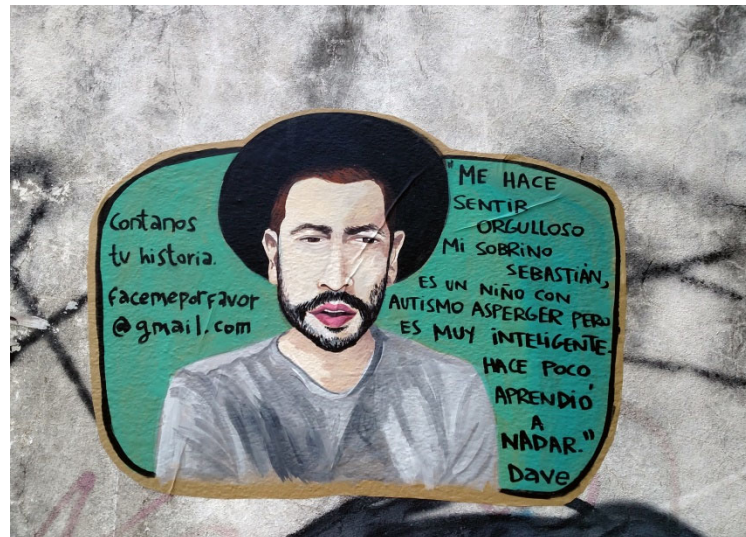 Contanos
tu historia.
facemeporfavor
@gmail.com
"ME HACE
SENTIR
ORGULLOSO
MI SOBRINO
SEBASTIÁN,
ES UN NIÑO CON
AUTISMO ASPERGER PERO
ES MUY INTELIGENTE.
HACE POCO
APRENDIÓ
A
NADAR."
Dave